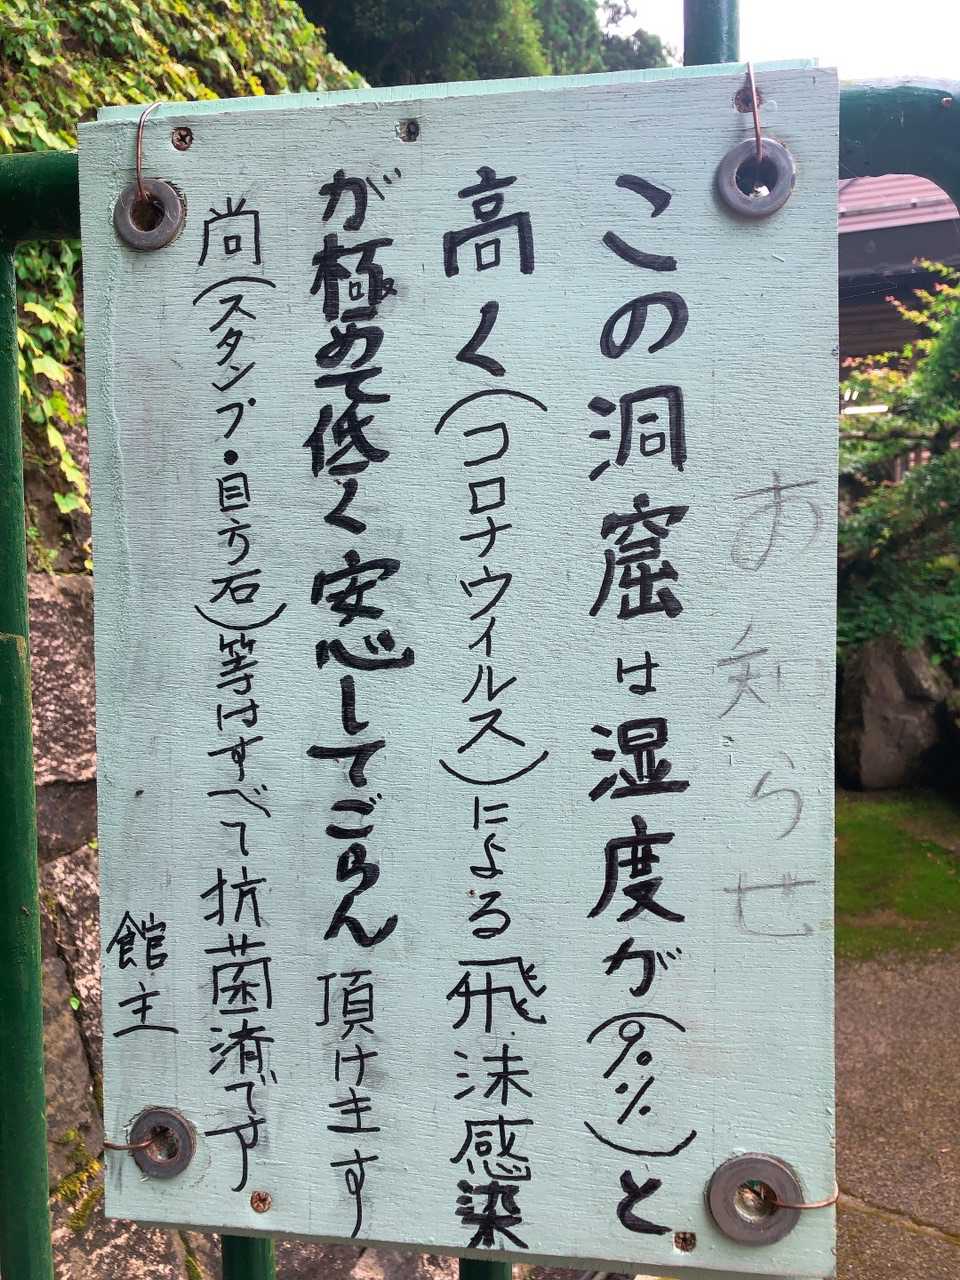 お知らせ
この洞窟は湿度が(90%)と
高く(コロナウイルス)による飛沫感染
が極めて低く安心してごらん頂け主す
尚(スタンプ・自方石)等はすべて抗菌済です
館主